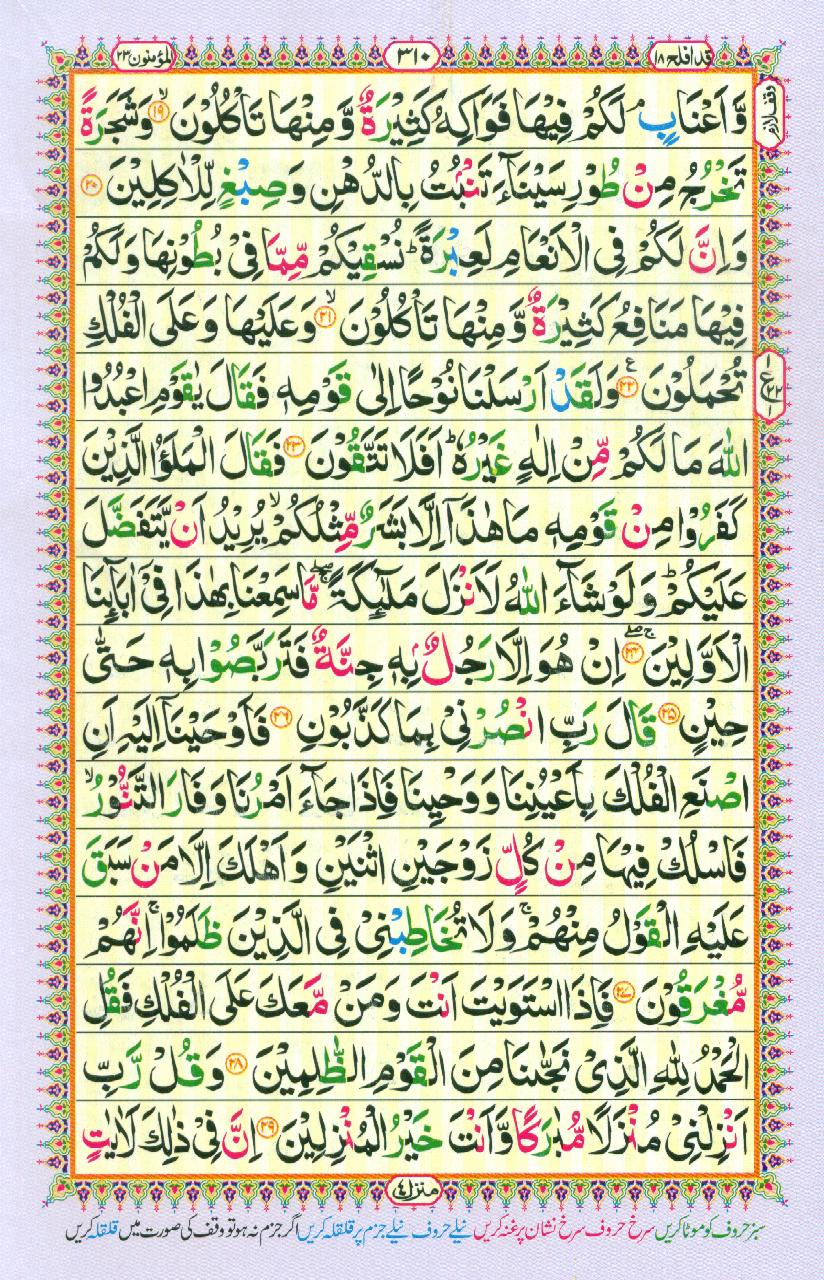 قد افلح ١٨
٣١٠
المؤمنون ٢٣
وقف لازم
وَّاَعۡنَابٍ‌ۘ لَـكُمۡ فِيۡهَا فَوَاكِهُ كَثِيۡرَةٌ وَّمِنۡهَا تَاۡكُلُوۡنَ ۙ‏﴿۱۹﴾ وَشَجَرَةً
تَخۡرُجُ مِنۡ طُوۡرِ سَيۡنَآءَ تَنۡۢبُتُ بِالدُّهۡنِ وَصِبۡغٍ لِّلۡاٰكِلِيۡنَ ﴿۲۰﴾
وَاِنَّ لَـكُمۡ فِى الۡاَنۡعَامِ لَعِبۡرَةً‌ ؕ نُسۡقِيۡكُمۡ مِّمَّا فِىۡ بُطُوۡنِهَا وَلَـكُمۡ
فِيۡهَا مَنَافِعُ كَثِيۡرَةٌ وَّمِنۡهَا تَاۡكُلُوۡنَ ۙ‏﴿۲۱﴾ وَعَلَيۡهَا وَعَلَى الۡـفُلۡكِ
تُحۡمَلُوۡنَ ﴿۲۲﴾ وَلَـقَدۡ اَرۡسَلۡنَا نُوۡحًا اِلٰى قَوۡمِهٖ فَقَالَ يٰقَوۡمِ اعۡبُدُوا
اللّٰهَ مَا لَـكُمۡ مِّنۡ اِلٰهٍ غَيۡرُهٗ ؕ اَفَلَا تَتَّقُوۡنَ ﴿۲۳﴾ فَقَالَ الۡمَلَؤُا الَّذِيۡنَ
كَفَرُوۡا مِنۡ قَوۡمِهٖ مَا هٰذَاۤ اِلَّا بَشَرٌ مِّثۡلُكُمۡۙ يُرِيۡدُ اَنۡ يَّـتَفَضَّلَ
عَلَيۡكُمۡ ؕ وَلَوۡ شَآءَ اللّٰهُ لَاَنۡزَلَ مَلٰٓٮِٕكَةً  ۖۚ مَّا سَمِعۡنَا بِهٰذَا فِىۡۤ اٰبَآٮِٕنَا
الۡاَوَّلِيۡنَ‌ ۚ‏﴿۲۴﴾ اِنۡ هُوَ اِلَّا رَجُلٌۢ بِهٖ جِنَّةٌ فَتَرَبَّصُوۡا بِهٖ حَتّٰى
حِيۡنٍ ﴿۲۵﴾ قَالَ رَبِّ انْصُرۡنِىۡ بِمَا كَذَّبُوۡنِ ﴿۲۶﴾ فَاَوۡحَيۡنَاۤ اِلَيۡهِ اَنِ
اصۡنَعِ الۡفُلۡكَ بِاَعۡيُنِنَا وَوَحۡيِنَا فَاِذَا جَآءَ اَمۡرُنَا وَفَارَ التَّنُّوۡرُۙ
فَاسۡلُكۡ فِيۡهَا مِنۡ كُلٍّ زَوۡجَيۡنِ اثۡنَيۡنِ وَاَهۡلَكَ اِلَّا مَنۡ سَبَقَ
عَلَيۡهِ الۡقَوۡلُ مِنۡهُمۡ‌ۚ وَلَا تُخَاطِبۡنِىۡ فِى الَّذِيۡنَ ظَلَمُوۡا‌ۚ اِنَّهُمۡ
مُّغۡرَقُوۡنَ ﴿۲۷﴾ فَاِذَا اسۡتَوَيۡتَ اَنۡتَ وَمَنۡ مَّعَكَ عَلَى الۡـفُلۡكِ فَقُلِ
الۡحَمۡدُ لِلّٰهِ الَّذِىۡ نَجّٰٮنَا مِنَ الۡقَوۡمِ الظّٰلِمِيۡنَ ﴿۲۸﴾ وَقُلْ رَّبِّ
اَنۡزِلۡنِىۡ مُنۡزَلًا مُّبٰرَكًا وَّاَنۡتَ خَيۡرُ الۡمُنۡزِلِيۡنَ ﴿۲۹﴾ اِنَّ فِىۡ ذٰلِكَ لَاٰيٰتٍ
منزل ٤
سبز حروف کو موٹا کریں سرخ حروف سرخ نشان پر غنہ کریں نیلے حروف نیلے جزم پر قلقلہ کریں اگر جزم نہ ہو تو وقف کی صورت میں قلقلہ کریں